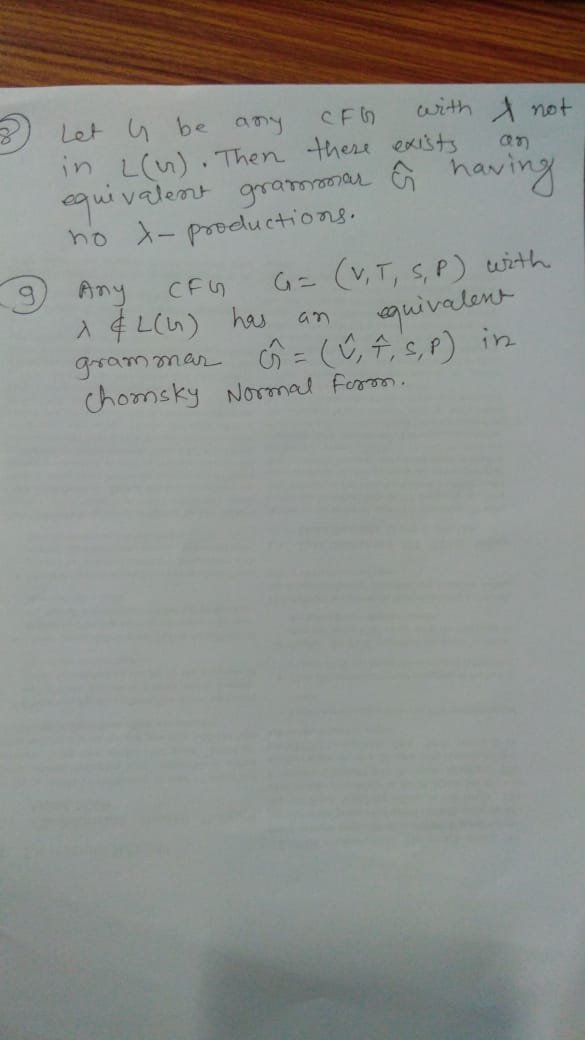 8) Let G be any CFG with λ not
in L(G). Then there exists an
equivalent grammar Ĝ having
no λ-productions.
9 Any CFG G = (V, T, S, P) with
λ ∉ L(G) has an equivalent
grammar Ĝ = (V̂, T̂, S, P) in
Chomsky Normal Form.